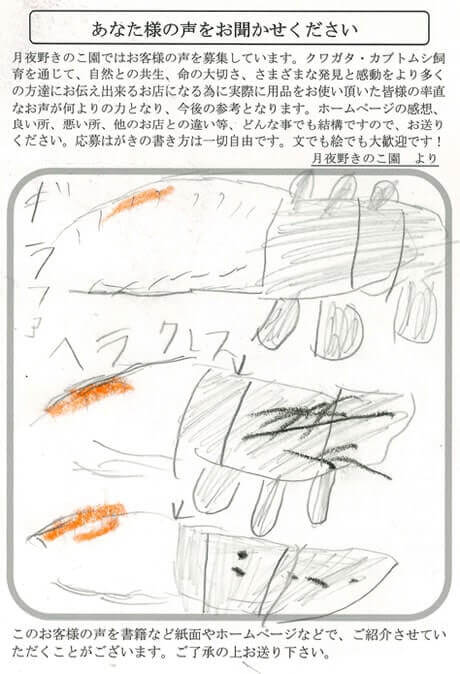 あなた様の声をお聞かせください
月夜野きのこ園ではお客様の声を募集しています。クワガタ・カブトムシ飼
育を通じて、自然との共生、命の大切さ、さまざまな発見と感動をより多く
の方達にお伝え出来るお店になる為に実際に用品をお使い頂いた皆様の率直
なお声が何よりの力となり、今後の参考となります。ホームページの感想、
良い所、悪い所、他のお店との違い等、どんな事でも結構ですので、お送り
ください。応募はがきの書き方は一切自由です。文でも絵でも大歓迎です！
月夜野きのこ園　より
ギラファ
ヘラクレス
このお客様の声を書籍など紙面やホームページなどで、ご紹介させてい
ただくことがございます。ご了承の上お送り下さい。